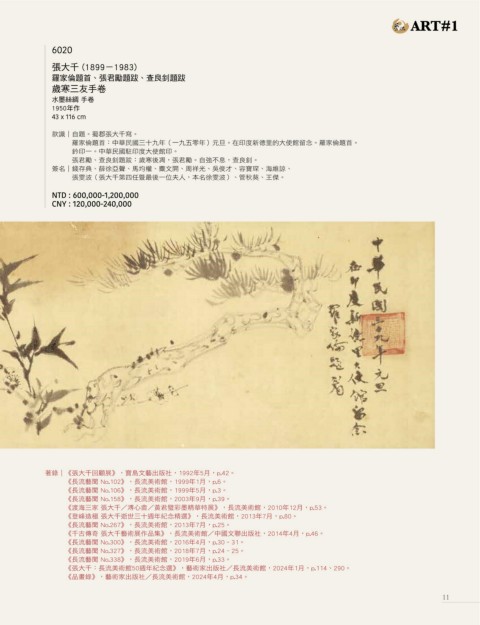 ART#1
6020
張大千 (1899－1983)
羅家倫題首、張君勱題跋、查良釗題跋
歲寒三友手卷
水墨絲絹 手卷
1950年作
43 x 116 cm
款識｜自題。蜀郡張大千寫。
羅家倫題首：中華民國三十九年（一九五零年）元旦，在印度新德里的大使館留念，羅家倫題首。
鈐印一，中華民國駐印度大使館印。
張君勱、查良釗題跋：歲寒後凋，張君勱。自強不息，查良釗。
NTD : 600,000-1,200,000
CNY : 120,000-240,000
中華民國三十九年元旦
在印度新德里大使館留念
羅家倫題首
著錄｜《張大千回顧展》，寶島文藝出版社，1992年5月，p.42。
《長流藝聞 No.102》，長流美術館，1999年1月，p.6。
《長流藝聞 No.106》，長流美術館，1999年5月，p.3。
《長流藝聞 No.158》，長流美術館，2003年9月，p.39。
《渡海三家 張大千／溥心畬／黃君璧彩墨精華特展》，長流美術館，2010年12月，p.53。
《登峰造極 張大千逝世三十週年紀念精選》，長流美術館，2013年7月，p.80。
《長流藝聞 No.267》，長流美術館，2013年7月，p.25。
《千古傳奇 張大千藝術展作品集》，長流美術館／中國文聯出版社，2014年4月，p.46。
《長流藝聞 No.300》，長流美術館，2016年4月，p.30、31。
《長流藝聞 No.327》，長流美術館，2018年7月，p.24、25。
《長流藝聞 No.338》，長流美術館，2019年6月，p.33。
《張大千：長流美術館50週年紀念選》，藝術家出版社／長流美術館，2024年1月，p.114、290。
《品畫錄》，藝術家出版社／長流美術館，2024年4月，p.34。
11